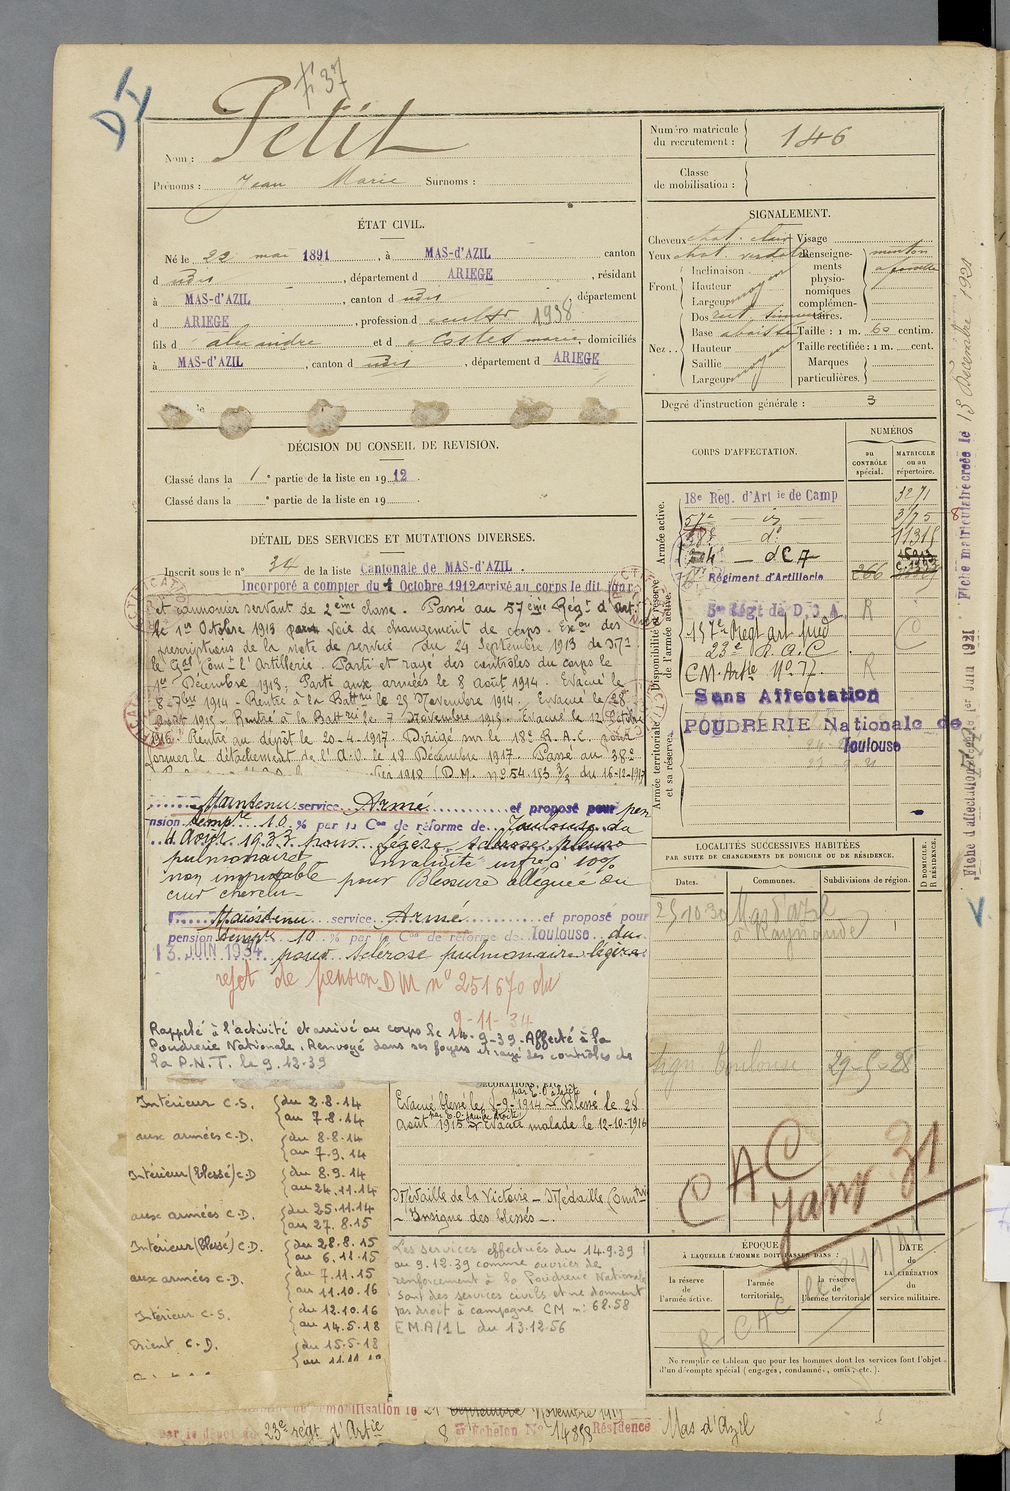 D I
F 37
Nom : Petit
Prénoms : Jean Marie Surnoms :
Numéro matricule du recrutement : 146
Classe de mobilisation :
ÉTAT CIVIL.
Né le 22 mai 1891, à MAS-d'AZIL canton
d udit, département d ARIEGE, résidant
à MAS-d'AZIL, canton d udit, département
d ARIEGE, profession d cultr 1938
fils d Alexandre et d Costes marie, domiciliés
à MAS-d'AZIL, canton d udit, département d ARIEGE
SIGNALEMENT.
Cheveux chat. clair Visage
Yeux chat. verdatre Renseignements physionomiques complémentaires. menton à fossette
Front. Inclinaison
Hauteur
Largeur moyen
Nez. Dos rect. sinueux
Base abaissée Taille : 1 m. 60 centim.
Hauteur Taille rectifiée : 1 m. cent.
Saillie Marques
Largeur moyen particulières.
Degré d'instruction générale : 3
DÉCISION DU CONSEIL DE REVISION.
Classé dans la 1e partie de la liste en 1912.
Classé dans la e partie de la liste en 19
DÉTAIL DES SERVICES ET MUTATIONS DIVERSES.
Inscrit sous le no 34 de la liste Cantonale de MAS-d'AZIL.
Incorporé a compter du 1 Octobre 1912 arrivé au corps le dit jour
et canonnier servant de 2ème classe. Passé au 57ème Régt d'Art.
le 1er Octobre 1913 par voie de changement de corps. Exon des
prescriptions de la note de service du 24 Septembre 1913 de Mr
le Gal Comt l'Artillerie. Parti et rayé des contrôles du corps le
1er Décembre 1913. Parti aux armées le 8 août 1914. Evacué le
8-7bre 1914 - Rentré à la Battrie le 25 Novembre 1914. Evacué le 28
Août 1915 - Rentré à la Battrie le 7 Novembre 1915 - Evacué le 12 Octobre
1916. Rentré au dépôt le 20-4-1917. Dirigé sur le 18e R.A.C. pour
former le détachement de l'A.O. le 18 Décembre 1917. Passé au 38e
1918 (D.M. no 54.193 3/3 du 16-12-1917
Maintenu service Armé et proposé pour pen
nsion tempre 10 % par la Con de réforme de Toulouse du
4 Août 1933 pour légère sclérose pleuro
pulmonaire. Invalidité infre à 10%
non imputable pour Blessure alléguée du
cuir chevelu-
Maintenu service Armé et proposé pour
pension tempre 10 % par la Con de réforme de Toulouse du
13 JUIN 1934 pour sclérose pulmonaire légère
rejet de pension DM no 251670 du
9-11-34
Rappelé à l'activité et arrivé au corps le 14-9-39. Affecté à la
Poudrerie Nationale. Renvoyé dans ses foyers et rayé des contrôles de
la P.N.T. le 9.12.39
CORPS D'AFFECTATION.
NUMÉROS
au CONTRÔLE spécial.
MATRICULE ou au répertoire.
Armée active.
18e Reg. d'Art ie de Camp 3271
57e — id 3175
38e — do 11315
74e — d C A
Régiment d'Artillerie 266
Disponibilité et réserve de l'armée active.
5e Régt de D.C.A. R
157e Regt art pied
23e R.A.C
C M. Artie No 77. R
Sans Affectation
Armée territoriale et sa réserve.
POUDRERIE Nationale de
Toulouse
LOCALITÉS SUCCESSIVES HABITÉES
PAR SUITE DE CHANGEMENTS DE DOMICILE OU DE RÉSIDENCE.
Dates. Communes. Subdivisions de région. D DOMICILE. R RÉSIDENCE.
25.10.30 Mas d'azil
à Raynaude
Toulouse 29-5-28
C A C
Janv 31
Intérieur C-S. du 2-8-14
au 7-8-14
aux armées C-D. du 8-8-14
au 7-9.14
Intérieur (Blessé) C-D du 8.9.14
au 24.11.14
aux armées C-D. du 25.11.14
au 27.8.15
Intérieur (Blessé) C-D. du 28.8.15
au 6.11.15
aux armées C-D. du 7.11.15
au 11.10.16
Intérieur C-S. du 12.10.16
au 14.5.18
Orient C-D. du 15-5-18
DÉCORATIONS, ETC.
Evacué blessé le 8-9-1914 par E.O. à la tête - Blessé le 28
Août 1915 - Evacué malade le 12-10-1916
Médaille de la Victoire - Médaille Comtive
- Insigne des blessés -.
Les services effectués du 14.9.39
au 9.12.39 comme ouvrier de
renforcement à la Poudrerie Nationale
sont des services civils et ne donnent
pas droit à campagne CM no: 68.58
E.M.A/1L du 13.12.56
ÉPOQUE
À LAQUELLE L'HOMME DOIT PASSER DANS :
DATE de LA LIBÉRATION du service militaire.
la réserve de l'armée active.
l'armée territoriale.
la réserve de l'armée territoriale
R- C A C
Ne remplir ce tableau que pour les hommes dont les services font l'objet
d'un décompte spécial (engagés, condamnés, omis, etc.).
mobilisation le 21 Septembre Novembre 1919
par le dépôt du 23e régt d'Artie 8 er Echelon No 14898 Résidence Mas d'Azil
Fiche matriculaire créée le 15 Décembre 1921
Fiche d'affectation créée le 1er Juin 1921